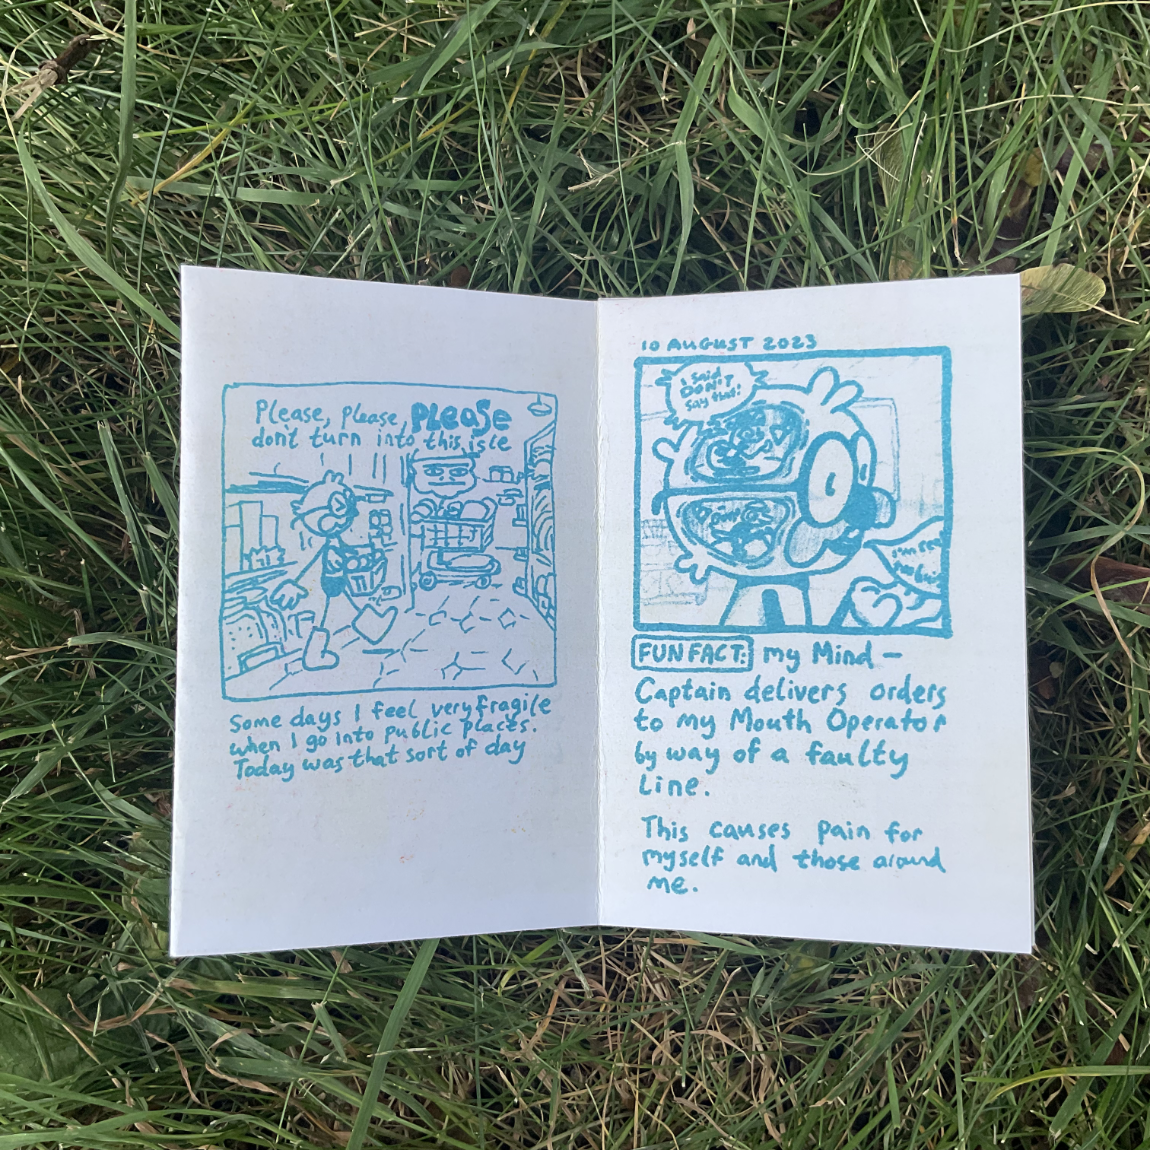 Please, Please, PLEASE
don't turn into this isle
Some days I feel very fragile
when I go into public places.
Today was that sort of day
10 AUGUST 2023
I said
DON'T
say that!
FUN FACT: my Mind—
Captain delivers orders
to my Mouth Operator
by way of a faulty
Line.
This causes pain for
myself and those around
me.